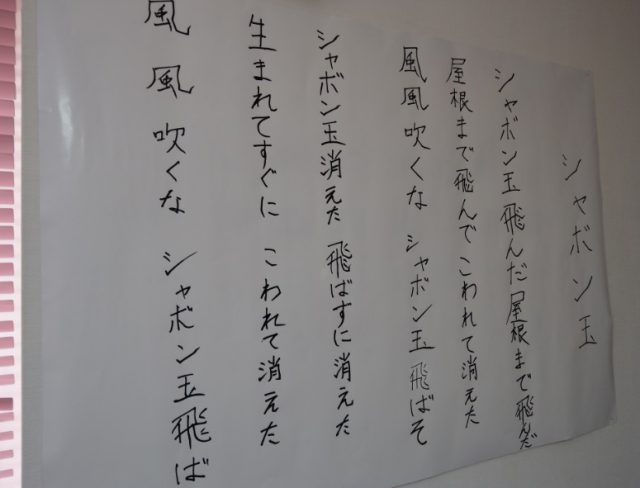 シャボン玉
シャボン玉 飛んだ 屋根まで 飛んだ
屋根まで飛んで こわれて消えた
風風吹くな シャボン玉 飛ばそ
シャボン玉消えた 飛ばずに消えた
生まれてすぐに こわれて消えた
風 風 吹くな シャボン玉飛ば